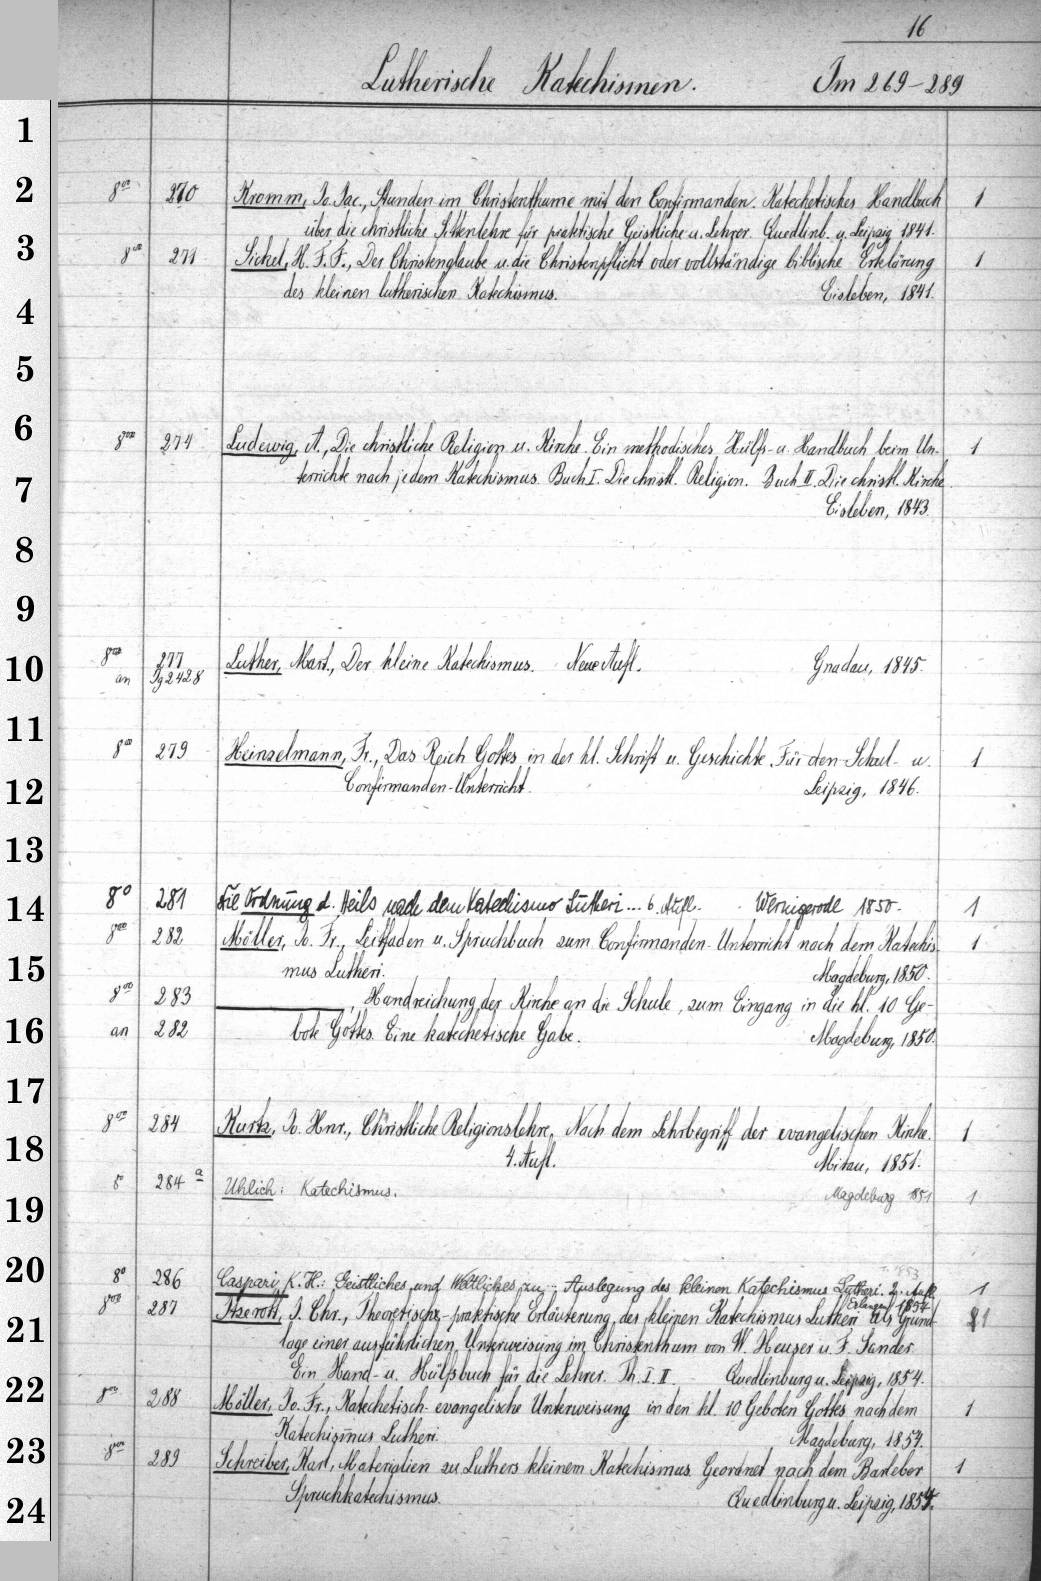 16
Lutherische Katechismen. Im 269-289
1
2
8vo 270 Kromm, Jo. Jac., Stunden im Christenthume mit den Confirmanden. Katechetisches Handbuch 1
über die christliche Sittenlehre für praktische Geistliche u. Lehrer. Quedlinb. u. Leipzig 1841.
3
8vo 271 Sickel, H. F. F., Der Christenglaube u. die Christenpflicht oder vollständige biblische Erklärung 1
des kleinen lutherischen Katechismus. Eisleben, 1841.
4
5
6
8vo 274 Ludewig, A., Die christliche Religion u. Kirche. Ein methodisches Hülfs- u. Handbuch beim Un- 1
terrichte nach jedem Katechismus. Buch I. Die christl. Religion. Buch II. Die christl. Kirche.
7
Eisleben, 1843.
8
9
10
8vo 277 Luther, Mart., Der kleine Katechismus. Neue Aufl. Gnadau, 1845.
an Ig 2428
11
8vo 279 Heinzelmann, Fr., Das Reich Gottes in der hl. Schrift u. Geschichte. Für den Schul- u. 1
Confirmanden-Unterricht. Leipzig, 1846.
12
13
14
8° 281 Die Ordnung d. Heils nach dem Katechismo Lutheri ... 6. Aufl. Wernigerode 1850. 1
8vo 282 Möller, Jo. Fr., Leitfaden u. Spruchbuch zum Confirmanden-Unterricht nach dem Katechis- 1
mus Lutheri. Magdeburg, 1850.
15
8vo 283 ————, Handreichung der Kirche an die Schule, zum Eingang in die hl. 10 Ge-
16
an 282 bote Gottes. Eine katechetische Gabe. Magdeburg, 1850.
17
8vo 284 Kurtz, Jo. Hnr., Christliche Religionslehre. Nach dem Lehrbegriff der evangelischen Kirche. 1
18
4. Aufl. Mitau, 1851.
8° 284a Uhlich: Katechismus. Magdeburg 1851 1
19
20
8° 286 Caspari, K. H.: Geistliches und Weltliches zu ... Auslegung des kleinen Katechismus Lutheri. 2. Aufl. 1
Erlangen 1854
8vo 287 Atzerott, J. Chr., Theoretisch-praktische Erläuterung des kleinen Katechismus Lutheri als Grund- 1
21
lage einer ausführlichen Unterweisung im Christenthum von W. Heuser u. F. Sander
Ein Hand- u. Hülfsbuch für die Lehrer. Th. I. II. Quedlinburg u. Leipzig, 1854.
22
8vo 288 Möller, Jo. Fr., Katechetisch-evangelische Unterweisung in den hl. 10 Geboten Gottes nach dem 1
Katechismus Lutheri. Magdeburg, 1854.
23
8vo 289 Schreiber, Karl, Materialien zu Luthers kleinem Katechismus. Geordnet nach dem Barleber 1
Spruchkatechismus. Quedlinburg u. Leipzig, 1854.
24